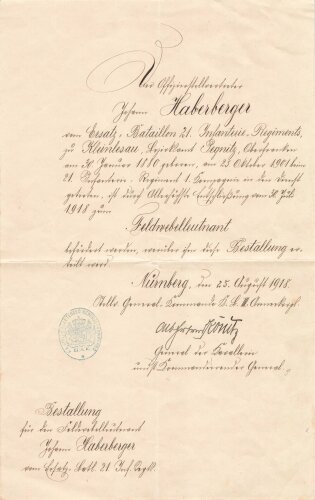 Der Offizierstellvertreter
Johann Haberberger
vom Ersatz-Bataillon 21. Infanterie-Regiments,
zu Kleinlesau, Bezirksamt Pegnitz, Oberfranken
am 30. Januar 1880 geboren, am 23. Oktober 1901 beim
21. Infanterie-Regiment 1. Kompagnie in den Dienst
getreten, ist durch Allerhöchste Entschließung vom 30. Juli
1918 zum
Feldwebelleutnant
befördert worden, worüber ihm diese Bestallung er-
teilt wird.
Nürnberg, den 25. August 1918.
Stello. General-Kommando K. B. III. Armeekorps.
Könitz
General der Kavallerie
und Kommandierender General.
Bestallung
für den Feldwebelleutnant
Johann Haberberger
vom Ersatz-Batl. 21. Inf. Regts.